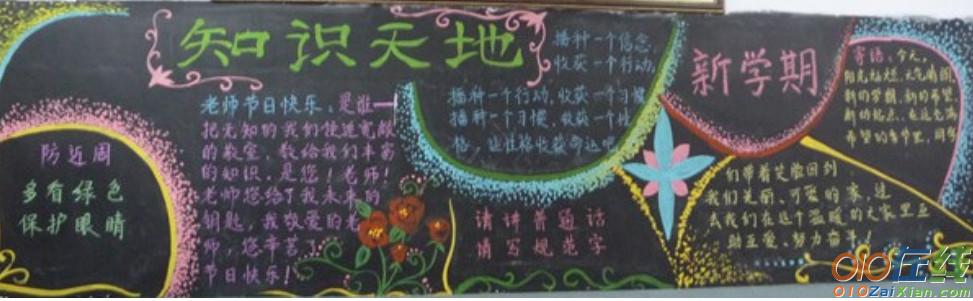 知识天地
防近周
多看绿色
保护眼睛
老师节日快乐,是谁一
把无知的我们使进宽敞
的教室,教给我们丰富
的知识,是您!老师!
老师您给了我未来的
钥匙,我敬爱的老
师,您辛苦了
节日快乐!
播种一个信念,
收获一个行动,
播种一个行动,收获一个习惯
播种一个习惯,收获一个性
格,让性格收获命运吧
请讲普通话
请写规范字
新学期
寄语:今天,
阳光灿烂,天气晴朗
新的学期,新的希望,
新的起点,在这充满
希望的春节里,同学
们带着笑脸回到
我们美丽、可爱的家,这
我们在这个温暖的大家里互
助互爱、努力奋斗!
010在线
010ZaiXian.com